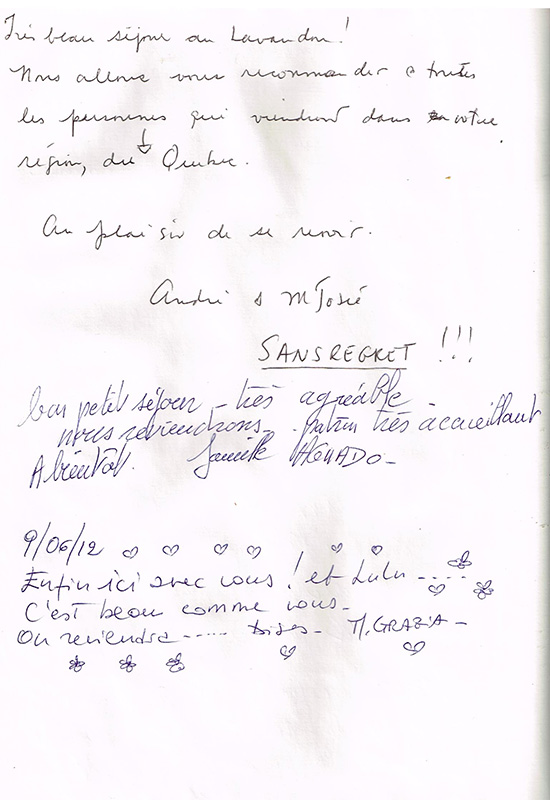 Très beau séjour au Lavandou!
Nous allons vous recommander à toutes
les personnes qui viendront dans votre
région, du Québec.
Au plaisir de se revoir.
André & M Josée
SANSREGRET !!!
bon petit séjour - très agréable
nous reviendrons - patron très accueillant
A bientôt. famille
9/06/12
Enfin ici avec vous! et Lulu .....
C'est beau comme vous -
On reviendra ..... Bises - M. GRAZIA -